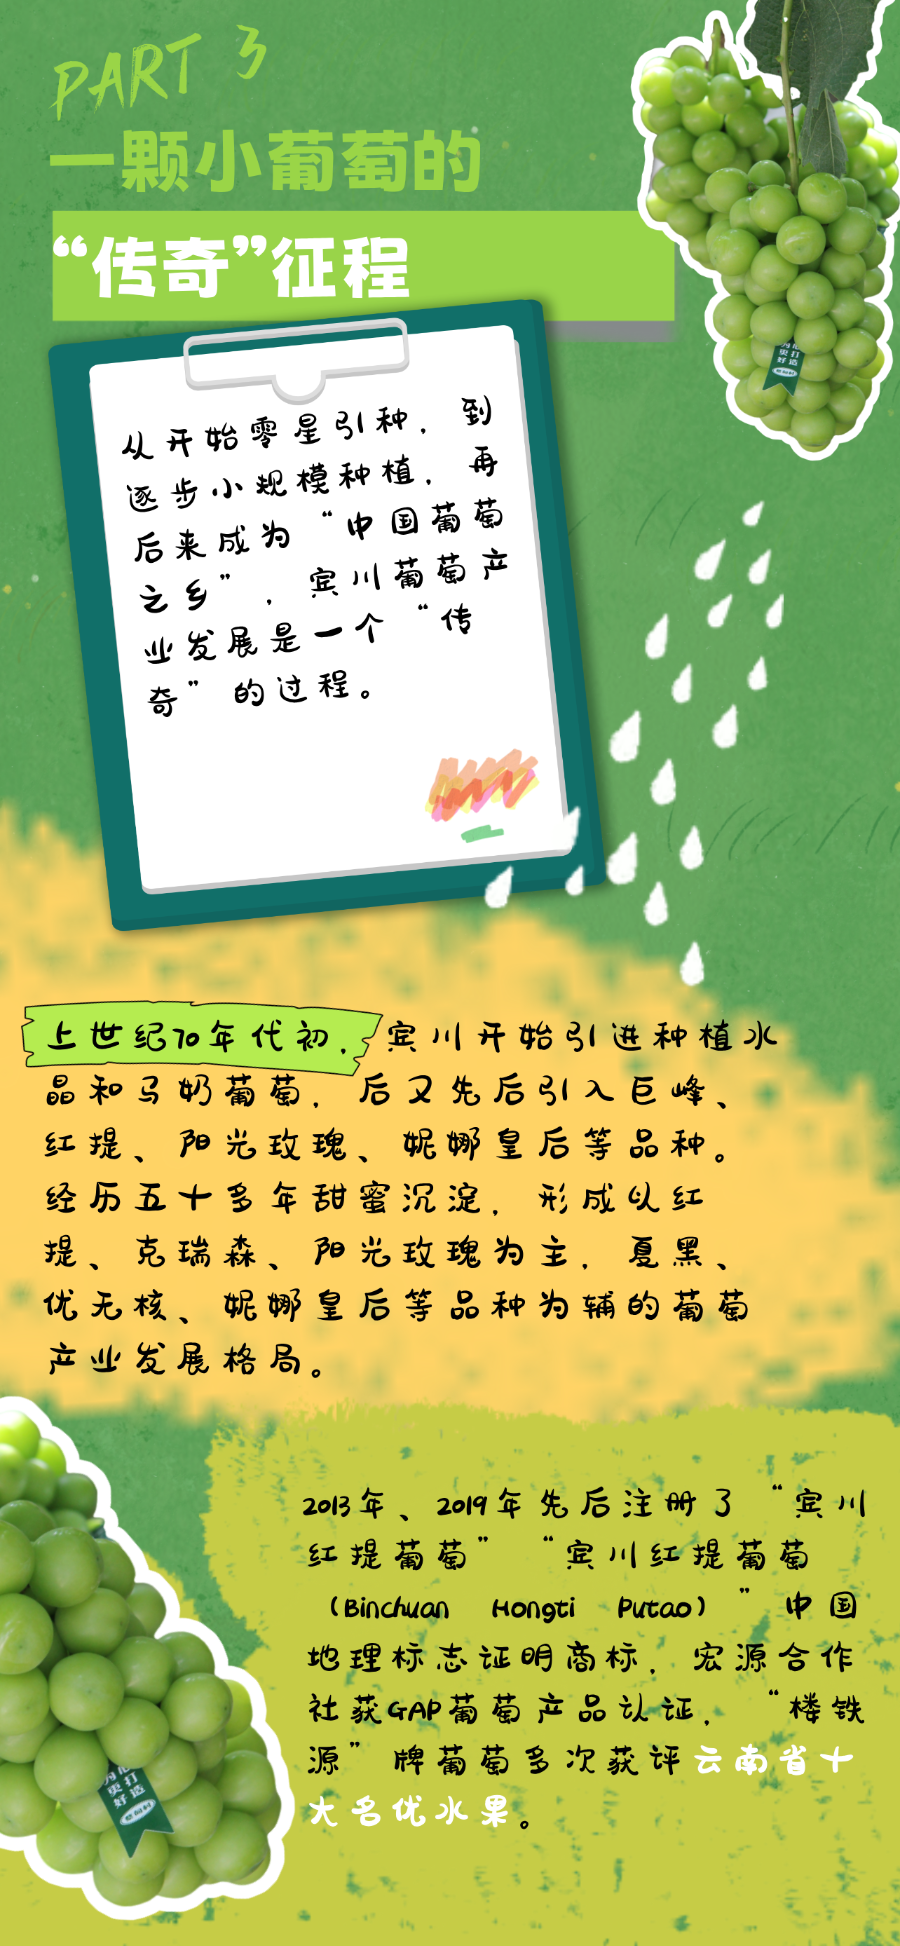 PART 3
一颗小葡萄的
“传奇”征程
为心
更打
好造
从开始零星引种，到
逐步小规模种植，再
后来成为“中国葡萄
之乡”，宾川葡萄产
业发展是一个“传
奇”的过程。
上世纪70年代初，宾川开始引进种植水
晶和马奶葡萄，后又先后引入巨峰、
红提、阳光玫瑰、妮娜皇后等品种。
经历五十多年甜蜜沉淀，形成以红
提、克瑞森、阳光玫瑰为主，夏黑、
优无核、妮娜皇后等品种为辅的葡萄
产业发展格局。
2013年、2019年先后注册了“宾川
红提葡萄”“宾川红提葡萄
（Binchuan Hongti Putao）”中国
地理标志证明商标，宏源合作
社获GAP葡萄产品认证，“楼铁
源”牌葡萄多次获评云南省十
大名优水果。
为心
更打
好造